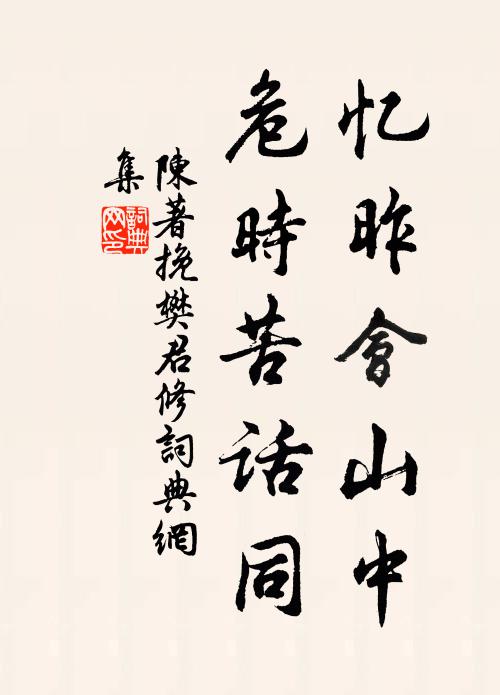 忆昨會山中
危時苦话同
陳著挽樊君修詞典網
集
詞典网印